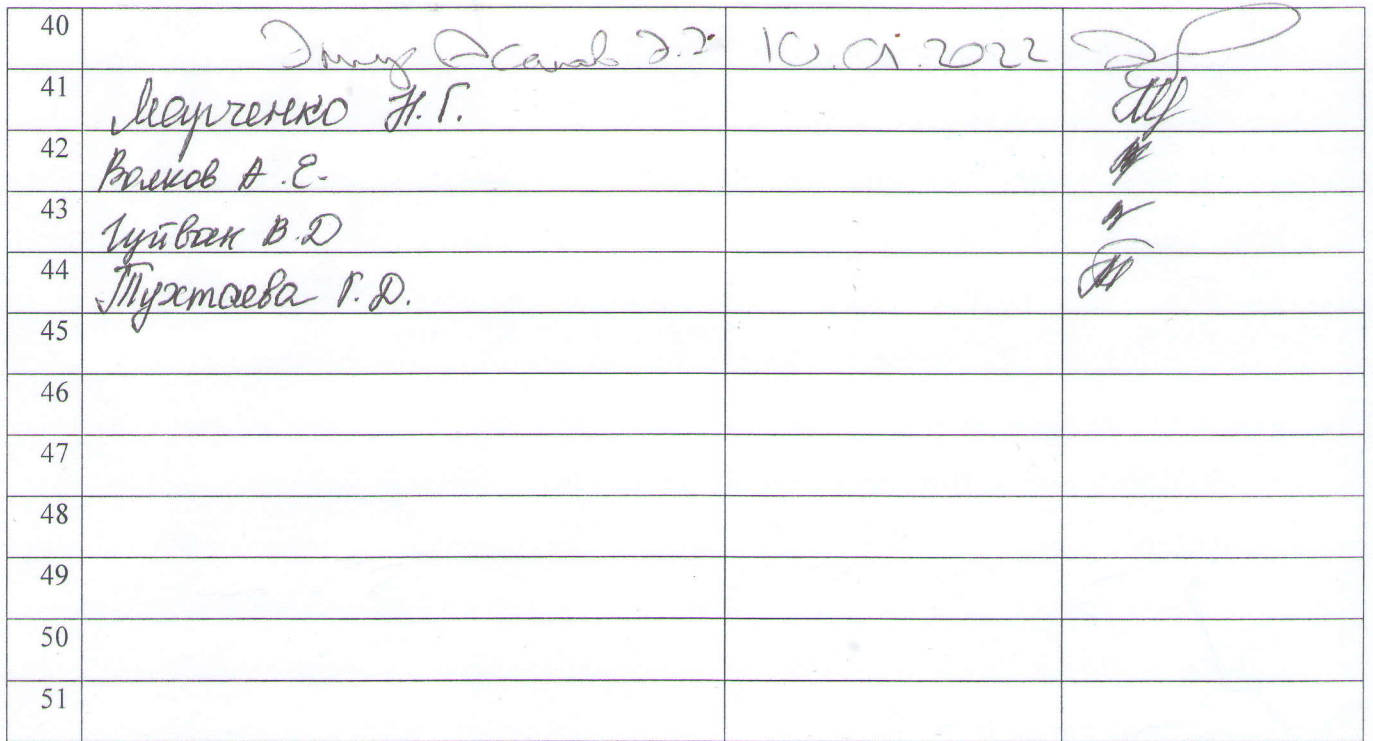 40 Эмир Асанов Э.Э. 10.01.2022
41 Марченко Н.Г.
42 Волков А.Е.
43 Гуйван В.Д
44 Тухтаева Г.Д.
45
46
47
48
49
50
51